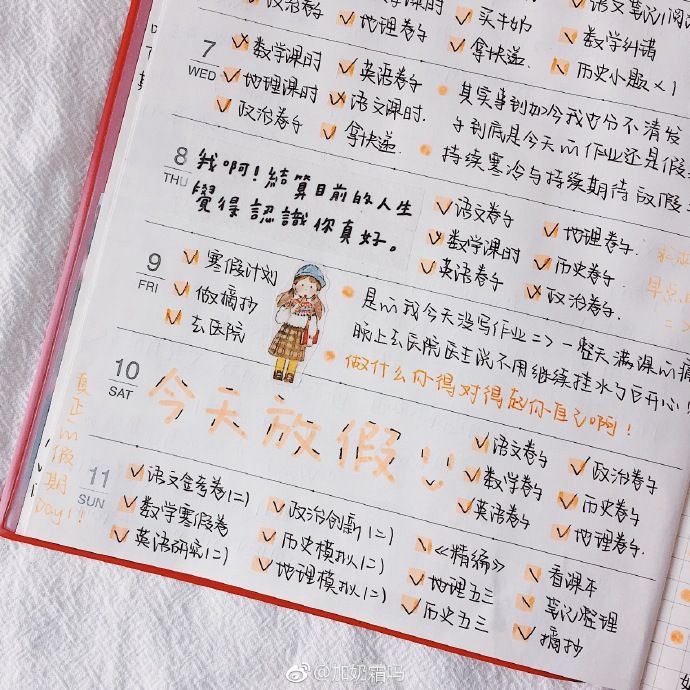 政治卷子
地理卷子
买牛奶
拿快递
数学纠错
历史小题×1
7
WED
数学课时
英语卷子
地理课时
语文课时.
政治卷子
拿快递
其实写到如今我也分不清发
子到底是今天的作业还是假
持续寒冷与持续期待放假
8
THU
我啊!結算目前的人生
覺得認識你真好。
语文卷子
地理卷子.
数学课时
历史卷子
英语卷子
政治卷子.
早点
9
FRI
寒假计划
做摘抄
去医院
是的我今天没写作业=> 一整天满课的痛
晚上去医院医生说不用继续挂水了巨开心!
做什么你得对得起你自己啊!
10
SAT
今天放假
语文卷子
政治卷子
数学卷子
历史卷子
英语卷子
地理卷子.
真正的假期Day!!
11
SUN
语文金考卷(二)
政治创新(二)
《精编》
看课本
数学寒假卷
历史模拟(二)
地理五三
笔记整理
英语研究(二)
地理模拟(二)
历史五三
摘抄
@加奶霜吗